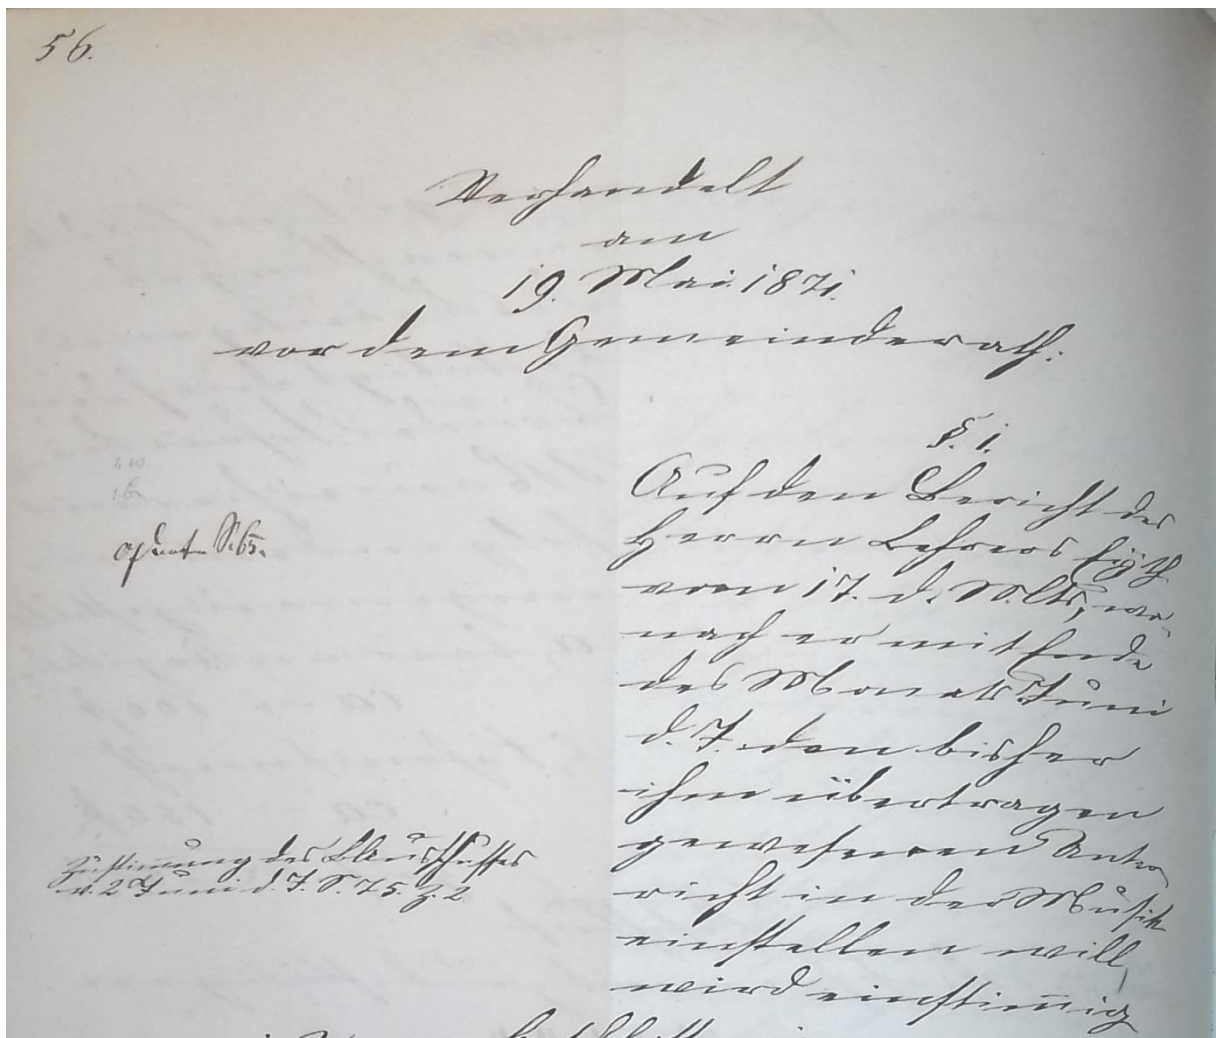 56.
Verhandelt
am
19. Mai 1871.
vor dem Gemeinderath.
§. 1.
Auf den Bericht des
Herrn Lehrers
vom 17. d. Mts, wo-
nach er mit Ende
des Monats Juni
d. J. den bisher
ihm übertragen
gewesenen Unter
richt in der Musik
einstellen will,
wird einstim̄ig
S. 65.
Zustim̄ung des Ausschusses
v. 2 Juni d. J. S. 75. Z. 2